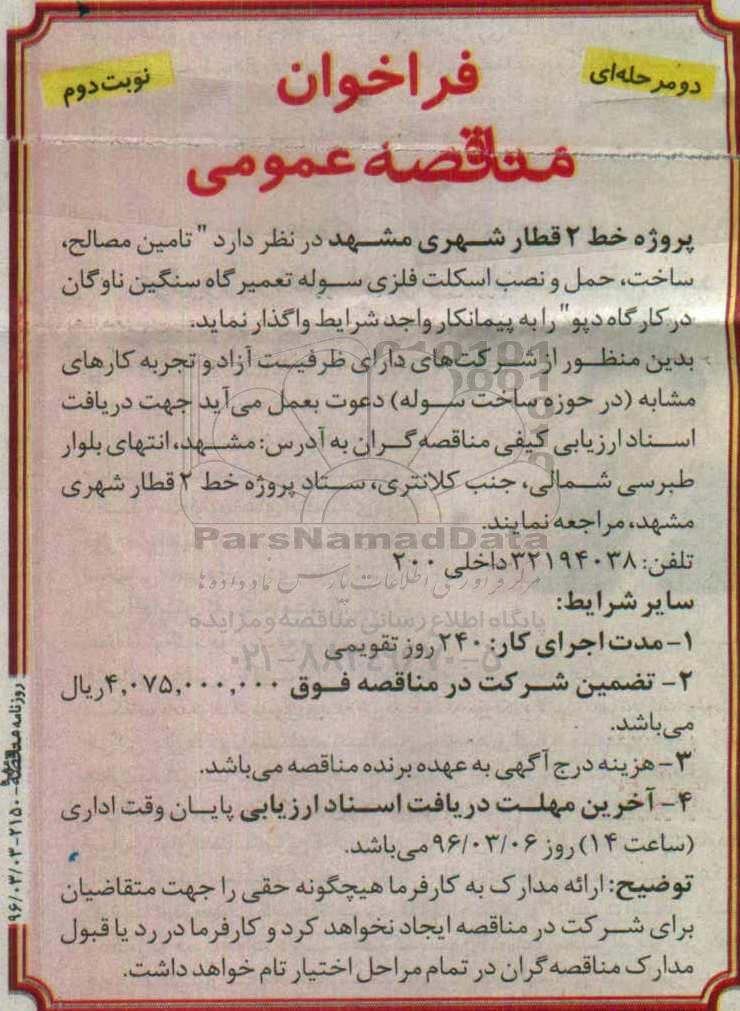 دومرحله‌ای
نوبت دوم
فراخوان
مناقصه عمومی
پروژه خط ۲ قطار شهری مشهد در نظر دارد " تامین مصالح،
ساخت، حمل و نصب اسکلت فلزی سوله تعمیرگاه سنگین ناوگان
در کارگاه دپو" را به پیمانکار واجد شرایط واگذار نماید.
بدین منظور از شرکت‌های دارای ظرفیت آزاد و تجربه کارهای
مشابه (در حوزه ساخت سوله) دعوت بعمل می‌آید جهت دریافت
اسناد ارزیابی کیفی مناقصه‌گران به آدرس: مشهد، انتهای بلوار
طبرسی شمالی، جنب کلانتری، ستاد پروژه خط ۲ قطار شهری
مشهد، مراجعه نمایند.
ParsNamadData
تلفن: ۳۲۱۹۴۰۳۸ داخلی ۲۰۰
مرکز فرآوری اطلاعات پارس نماد داده ها
سایر شرایط:
پایگاه اطلاع رسانی مناقصه و مزایده
۱- مدت اجرای کار: ۲۴۰ روز تقویمی
۲- تضمین شرکت در مناقصه فوق ۴,۰۷۵,۰۰۰,۰۰۰ ریال
می‌باشد.
۳- هزینه درج آگهی به عهده برنده مناقصه می‌باشد.
۴- آخرین مهلت دریافت اسناد ارزیابی پایان وقت اداری
(ساعت ۱۴) روز ۹۶/۰۳/۰۶ می‌باشد.
توضیح: ارائه مدارک به کارفرما هیچگونه حقی را جهت متقاضیان
برای شرکت در مناقصه ایجاد نخواهد کرد و کارفرما در رد یا قبول
مدارک مناقصه‌گران در تمام مراحل اختیار تام خواهد داشت.
روزنامه مناقصه - ۲۱۵۰ - ۹۶/۰۳/۰۳